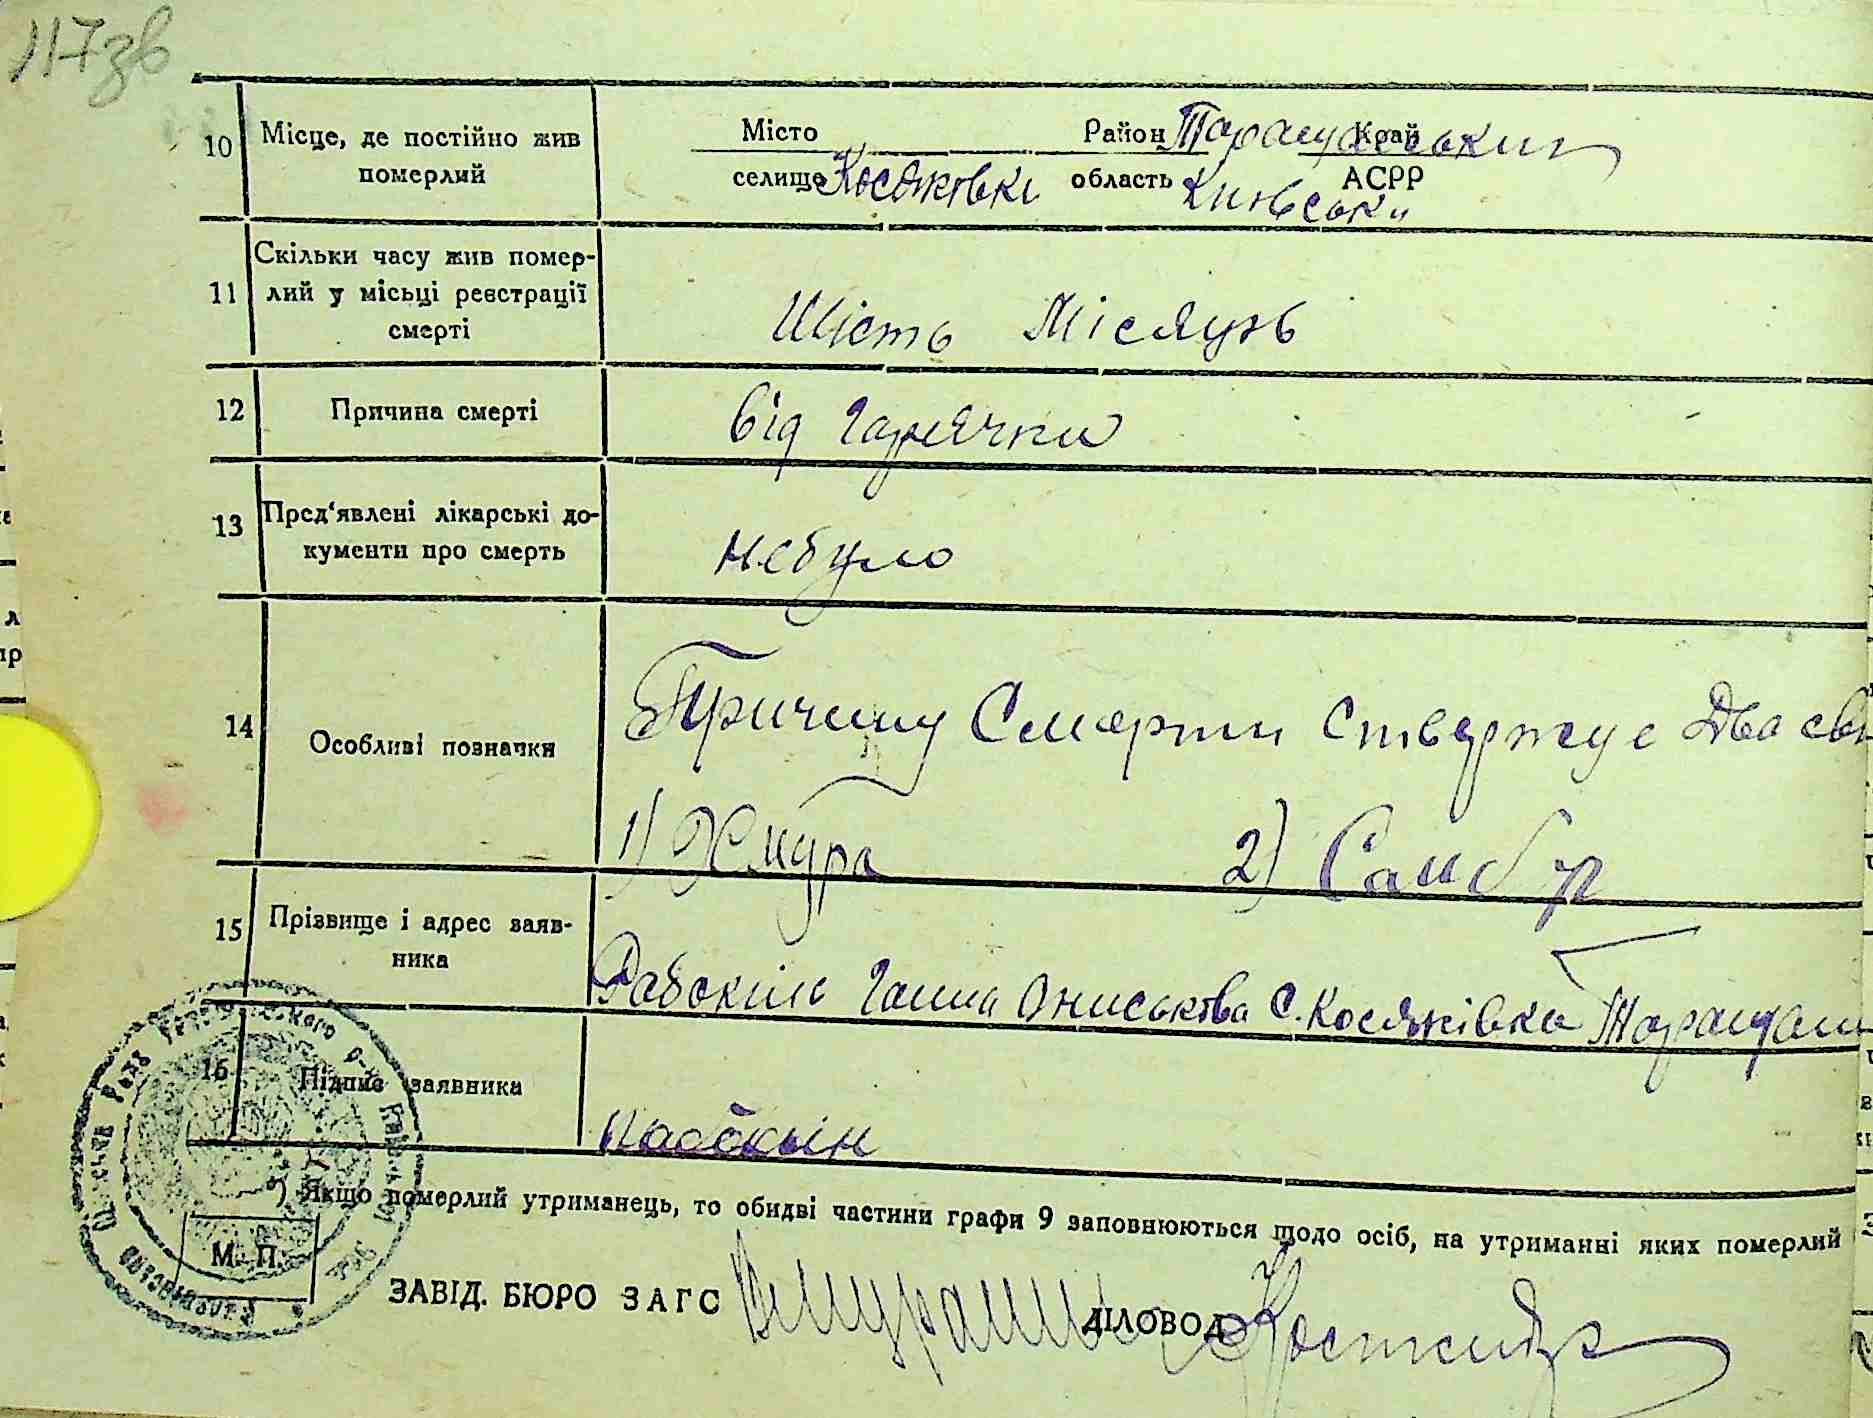 117зв
10 Місце, де постійно жив померлий
Місто Район Таращанський Край
селище Косяківка область Київськ АСРР
11 Скільки часу жив помер-
лий у місьці реєстрації
смерті
Шість Місяців
12 Причина смерті від Гарячки
13 Пред'явлені лікарські до-
кументи про смерть
небуло
14 Особливі позначки
Причину Смерти ствержує Два сві
1) Жмура 2) Самбур
15 Прізвище і адрес заяв-
ника
Ганна Ониськова с. Косяківка Таращан
16 Підпис заявника
*) Якщо померлий утриманець, то обидві частини графи 9 заповнюються щодо осіб, на утриманні яких померлий
М. П.
ЗАВІД. БЮРО ЗАГС ДІЛОВОД